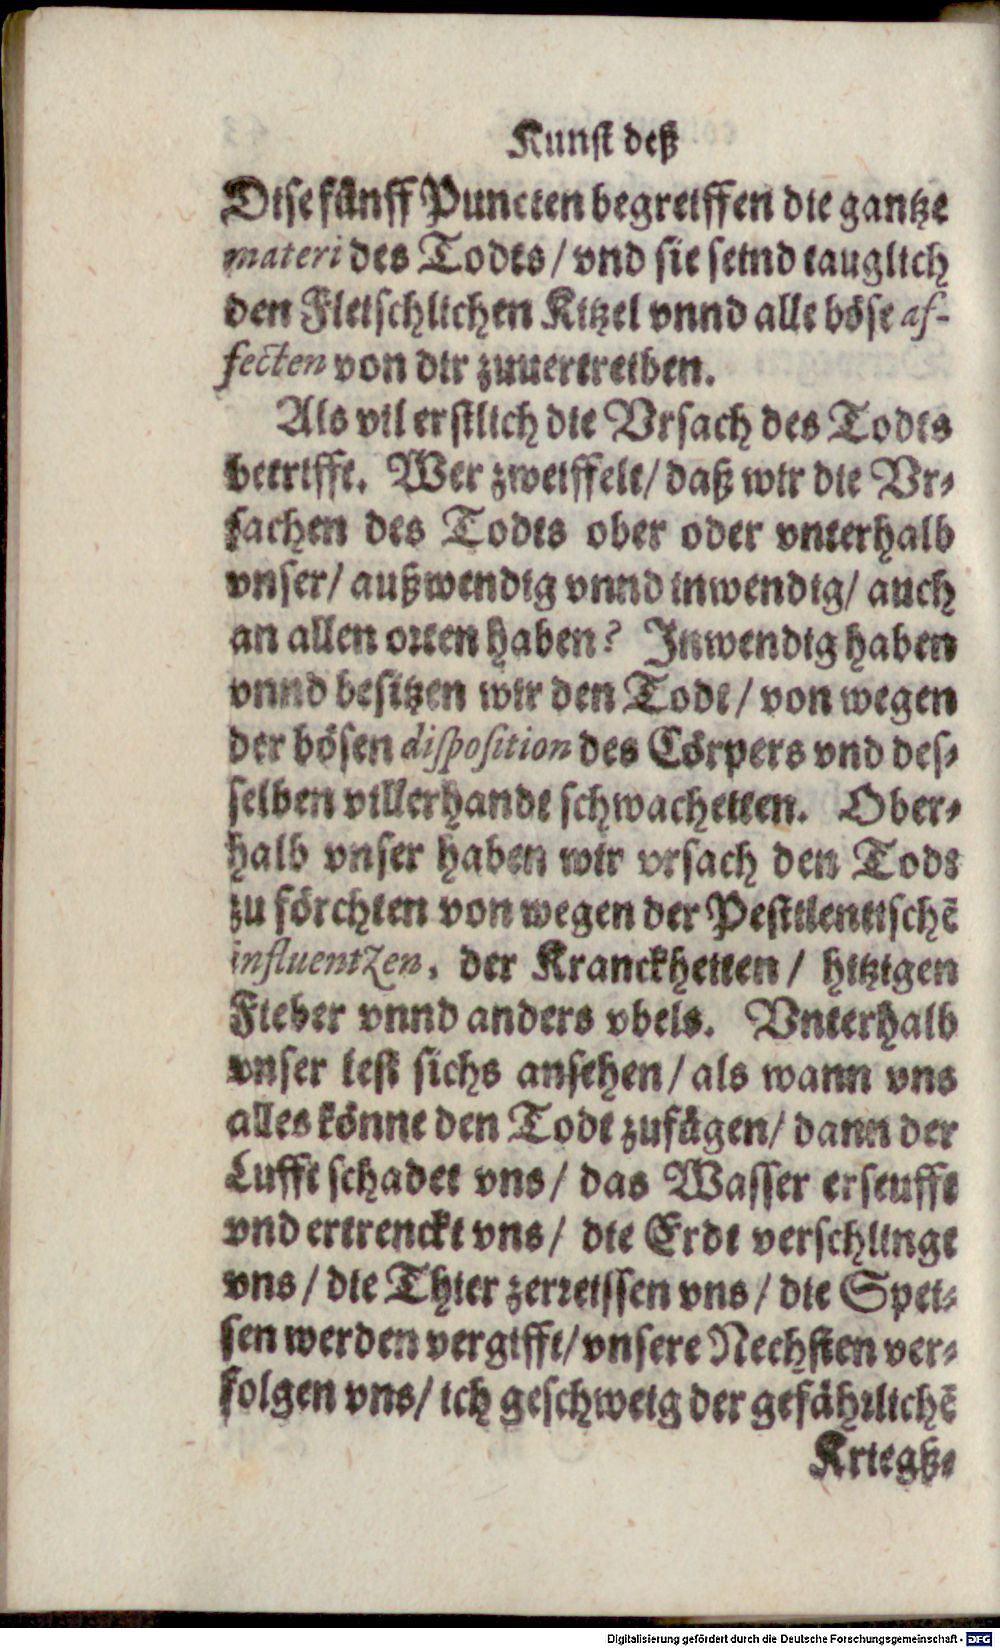 Kunst deß
Dise fünff Puncten begreiffen die gantze
materi des Todts / vnd sie seind tauglich
den Fleischlichen Kitzel vnnd alle böse af-
fecten von dir zuuertreiben.
Als vil erstlich die Vrsach des Todts
betrifft. Wer zweiffelt / daß wir die Vr-
sachen des Todts ober oder vnterhalb
vnser / außwendig vnnd inwendig / auch
an allen orten haben? Inwendig haben
vnnd besitzen wir den Todt / von wegen
der bösen disposition des Cörpers vnd des-
selben villerhandt schwacheiten. Ober-
halb vnser haben wir vrsach den Todt
zu förchten von wegen der Pestilentischē
influentzen, der Kranckheiten / hitzigen
Fieber vnnd anders vbels. Vnterhalb
vnser lest sichs ansehen / als wann vns
alles könne den Todt zufügen / dann der
Lufft schadet vns / das Wasser erseufft
vnd ertrenckt vns / die Erdt verschlingt
vns / die Thier zerreissen vns / die Spei-
sen werden vergifft / vnsere Nechsten ver-
folgen vns / ich geschweig der gefährlichē
Kriegß-
Digitalisierung gefördert durch die Deutsche Forschungsgemeinschaft - DFG